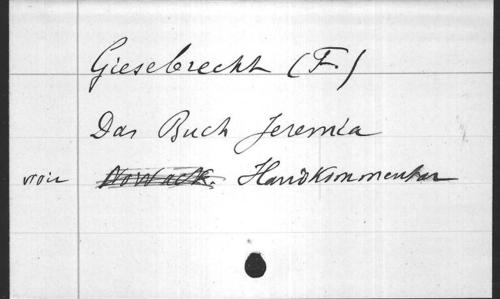 Giesebrecht (F.)
Das Buch Jeremia
voir Nowack. Handkommentar